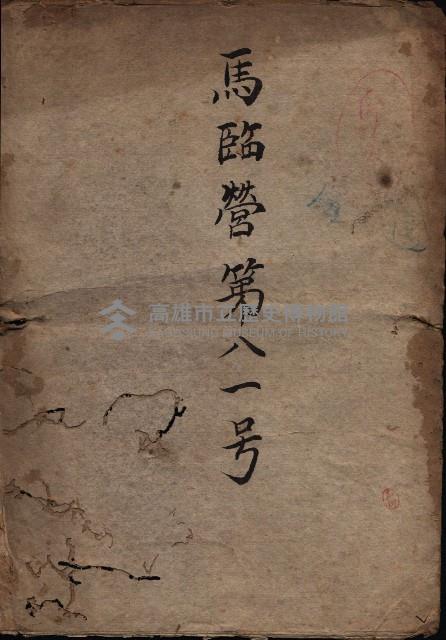 馬臨營第八一号
高雄市立歷史博物館
KAOHSIUNG MUSEUM OF HISTORY